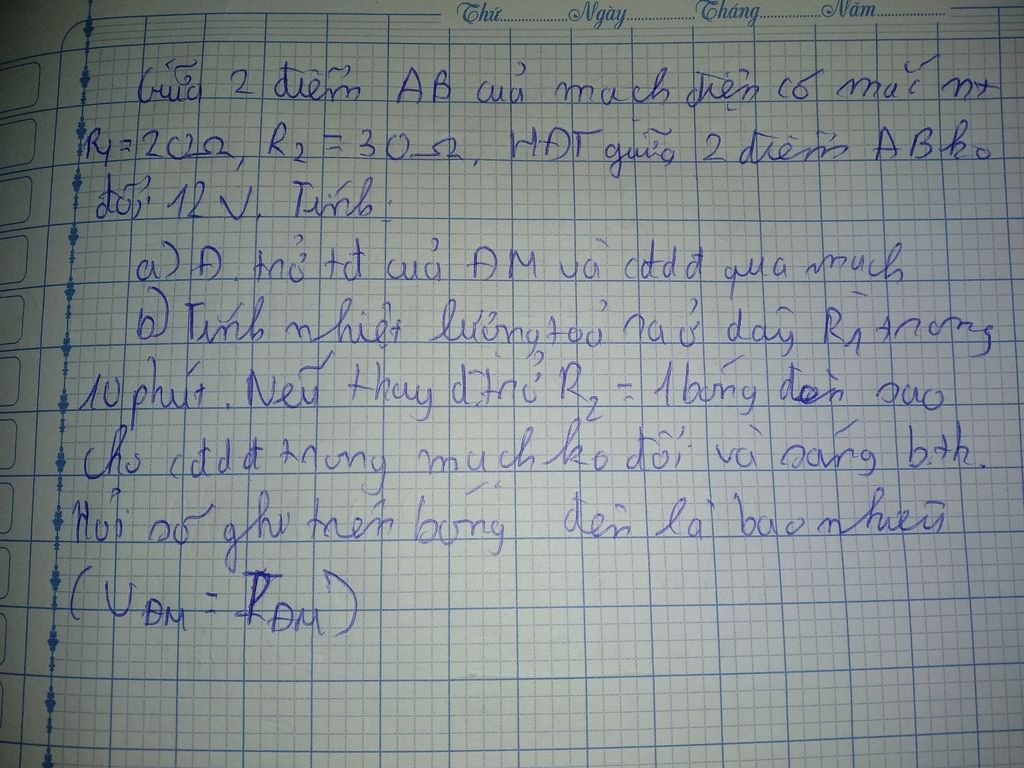 Thứ............Ngày............Tháng............Năm............
Giữa 2 điểm AB của mạch điện có mắc nt
R1 = 20Ω, R2 = 30Ω, HĐT giữa 2 điểm AB ko
đổi 12 V. Tính:
a) Đ. trở tđ của ĐM và cđdđ qua mạch
b) Tính nhiệt lượng toả ra ở dây R1 trong
10 phút. Nếu thay đ.trở R2 = 1 bóng đèn sao
cho cđdđ trong mạch ko đổi và sáng b.th.
Hỏi số ghi trên bóng đèn là bao nhiêu
(UĐM = PĐM)